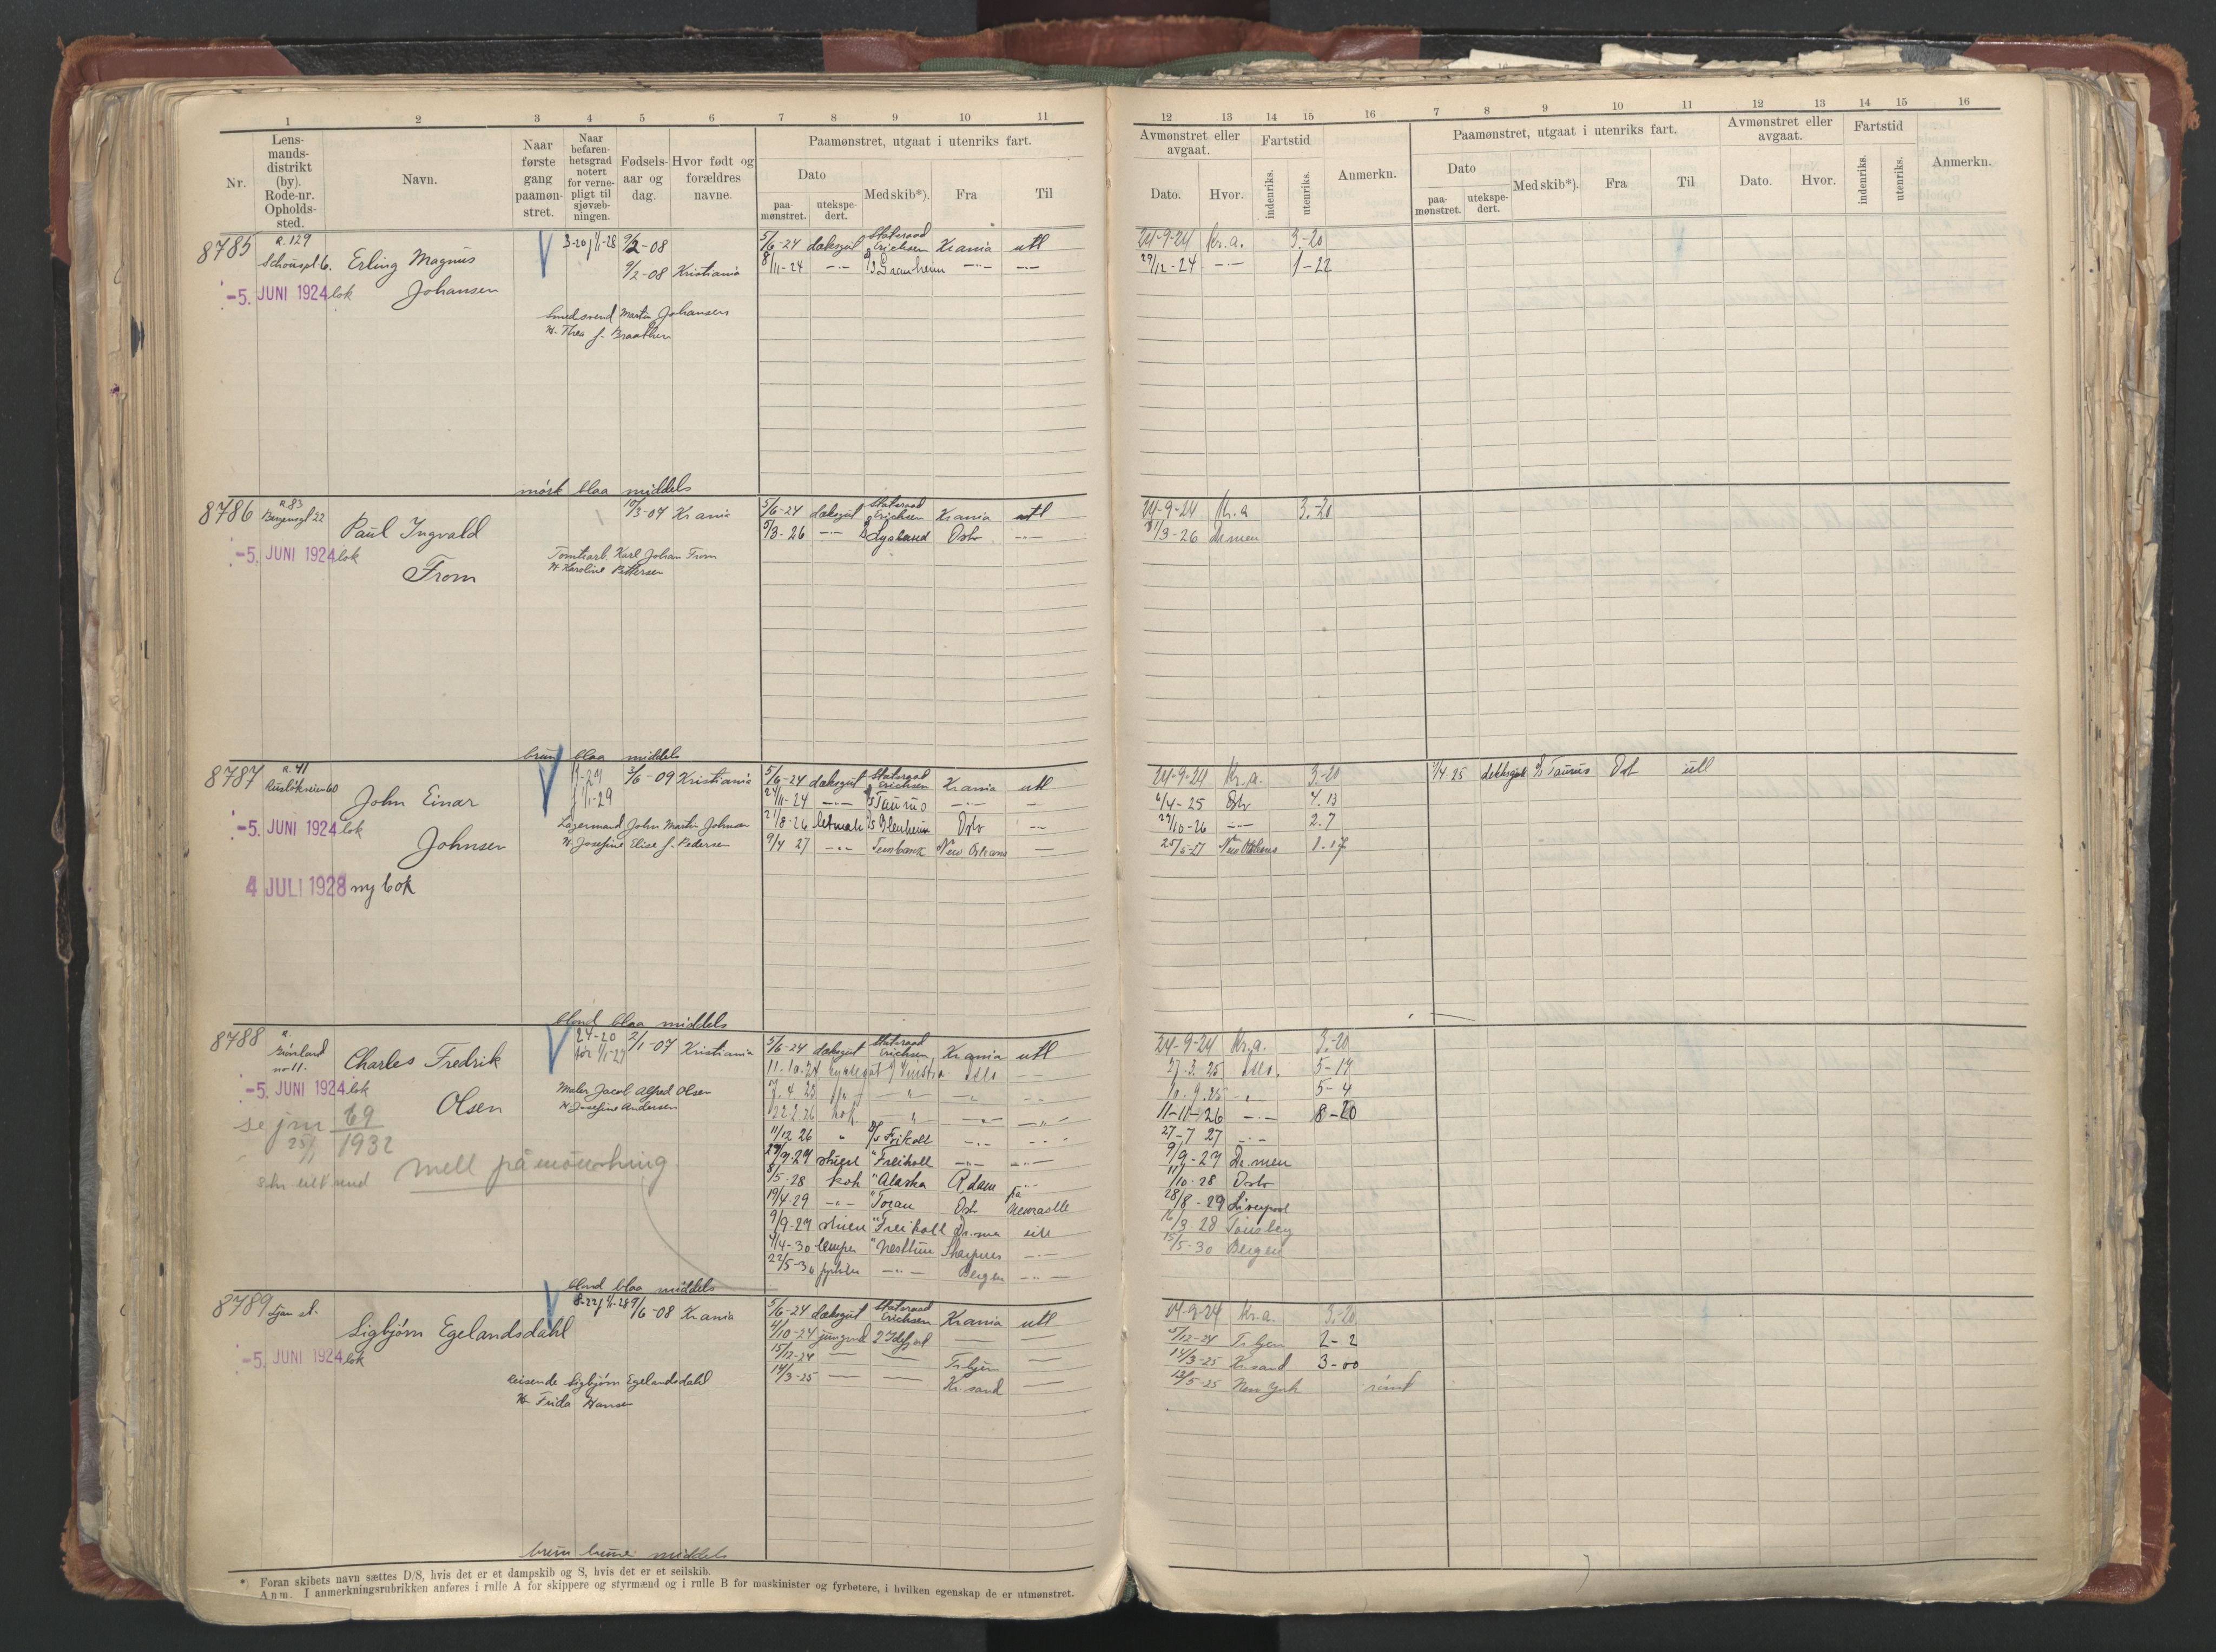 1 2 3 4 5 6 7 8 9 10 11
Nr.
Lens-
mands-
distrikt
(by).
Rode-nr.
Opholds-
sted.
Navn.
Naar
første
gang
paamøn-
stret.
Naar
befaren-
betsgrad
notert
for verne-
pligt til
sjøvæb-
ningen.
Fødsels-
aar og
dag.
Hvor født og
forældres
navne.
Paamønstret, utgaat i utenriks fart.
Dato
paa-
mønstret.
utekspe-
dert.
Med skib*).
Fra
Til
12 13 14 15 16 7 8 9 10 11 12 13 14 15 16
Avmønstret eller
avgaat.
Dato.
Hvor.
Fartstid
indenriks.
utenriks.
Anmerkn.
Paamønstret, utgaat i utenriks fart.
Dato
paa-
mønstret.
utekspe-
dert.
Med skib*).
Fra
Til
Avmønstret eller
avgaat.
Dato.
Hvor.
Fartstid
indenriks.
utenriks.
Anmerkn.
8785 R. 129
Erling Magnus
Johansen
-5. JUNI 1924 lok
3-20 1/1-28 9/2-08
9/2-08 Kristiania
Smedsvend Martin Johansen
H. Thea f. Braathen
5/6-24 dæksgut Statsraad Erichsen Krania utl
8/11-24 -"- Granheim -"- -"-
24-9-24 Kr.a. 3.-20
29/12-24 -"- 1-22
mørk blaa middels
8786 R. 83
Bergensgt 22
Paul Ingvald
From
-5. JUNI 1924 lok
10/3-07 Krania
Tomtearb. Karl Johan From
H Karoline Pettersen
5/6-24 dæksgut Statsraad Erichsen Krania utl
5/3-26 -"- Dygland Oslo -"-
24-9-24 Kr.a 3.-20
31/3-26 Dr.men
brun blaa middels
8787 R. 41
Ruseløkveien 60
John Einar
Johnsen
-5. JUNI 1924 lok
4 JULI 1928 ny bok
f 1/1-29
3/6-09 Kristiania
Lagermand John Martin Johnsen
H. Josefine Elise f. Pedersen
5/6-24 dæksgut Statsraad Erichsen Krania utl
24/11-24 -"- Taurus -"- -
21/8-26 letmatr Glenheim Oslo -"-
9/4 27 -"- New Orleans -
24-9-24 Kr.a. 3.-20
6/4-25 Oslo 4.13
29/10-26 -"- 2.7
25/5-27 New Orleans 1.17
1/4 25 dekksgut D/S Taurus Osl utl
blond blaa middels
8788 R.
Grønland
no 11.
Charles Fredrik
Olsen
-5. JUNI 1924 lok
se jnr 69
1932
24-20
2/1-07 Kristiania
Maler Jacob Alfred Olsen
H. Josefine Andersen
5/6-24 dæksgut Statsraad Erichsen Krania utl
11-10-24 Oslo
7.4 25
22.2.26 kok
11/12 26 " D/S Frikoll -"- -"-
29/9-27 stuert " Freikoll -"- -"-
8/5-28 kok " Alaska R.dam -"-
19/4-29 -"- " Toran Oslo fra Newcastle
9/9-29 " Freikoll Dr.men utl
4/4-30 " Nesttun -"-
22/5-30 -"- Bergen -"-
24-9-24 Kr.a. 3.-20
27.3.25 Oslo. 5-17
10.9.25 -"- 5-4
11-11-26 -"- 8-20
27-7 27 -"-
9/9-27 Dr.men
11/10-28 Oslo
28/8-29 Liverpool
16/3 28 Tønsberg
15/5-30 Bergen
blond blaa middels
8789 Ljan st.
Sigbjørn Egelandsdahl
-5. JUNI 1924 lok
9/6-08 Krania
Reisende Sigbjørn Egelandsdahl
H Frida Hansen
5/6-24 dæksgut Statsraad Erichsen Krania utl
4/10-24 jungmd Idefjord - -
15/12-24 - - Tr.hjem -
14/3-25 - - Kr.sand -
24-9-24 Kr.a. 3.-20
5/12-24 Tr.hjem 2-2
14/3-25 Kr.sand 3-00
13/5-25 New York rømt
brun brune middels
* Foran skibets navn sættes D/S, hvis det er et dampskib og S, hvis det er et seilskib.
Anm. I anmerkningsrubrikken anføres i rulle A for skippere og styrmænd og i rulle B for maskinister og fyrbøtere, i hvilken egenskap de er utmønstret.